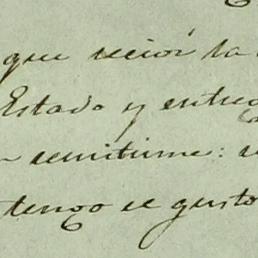 que la
Estado y entre
remitirme:
tengo el gusto